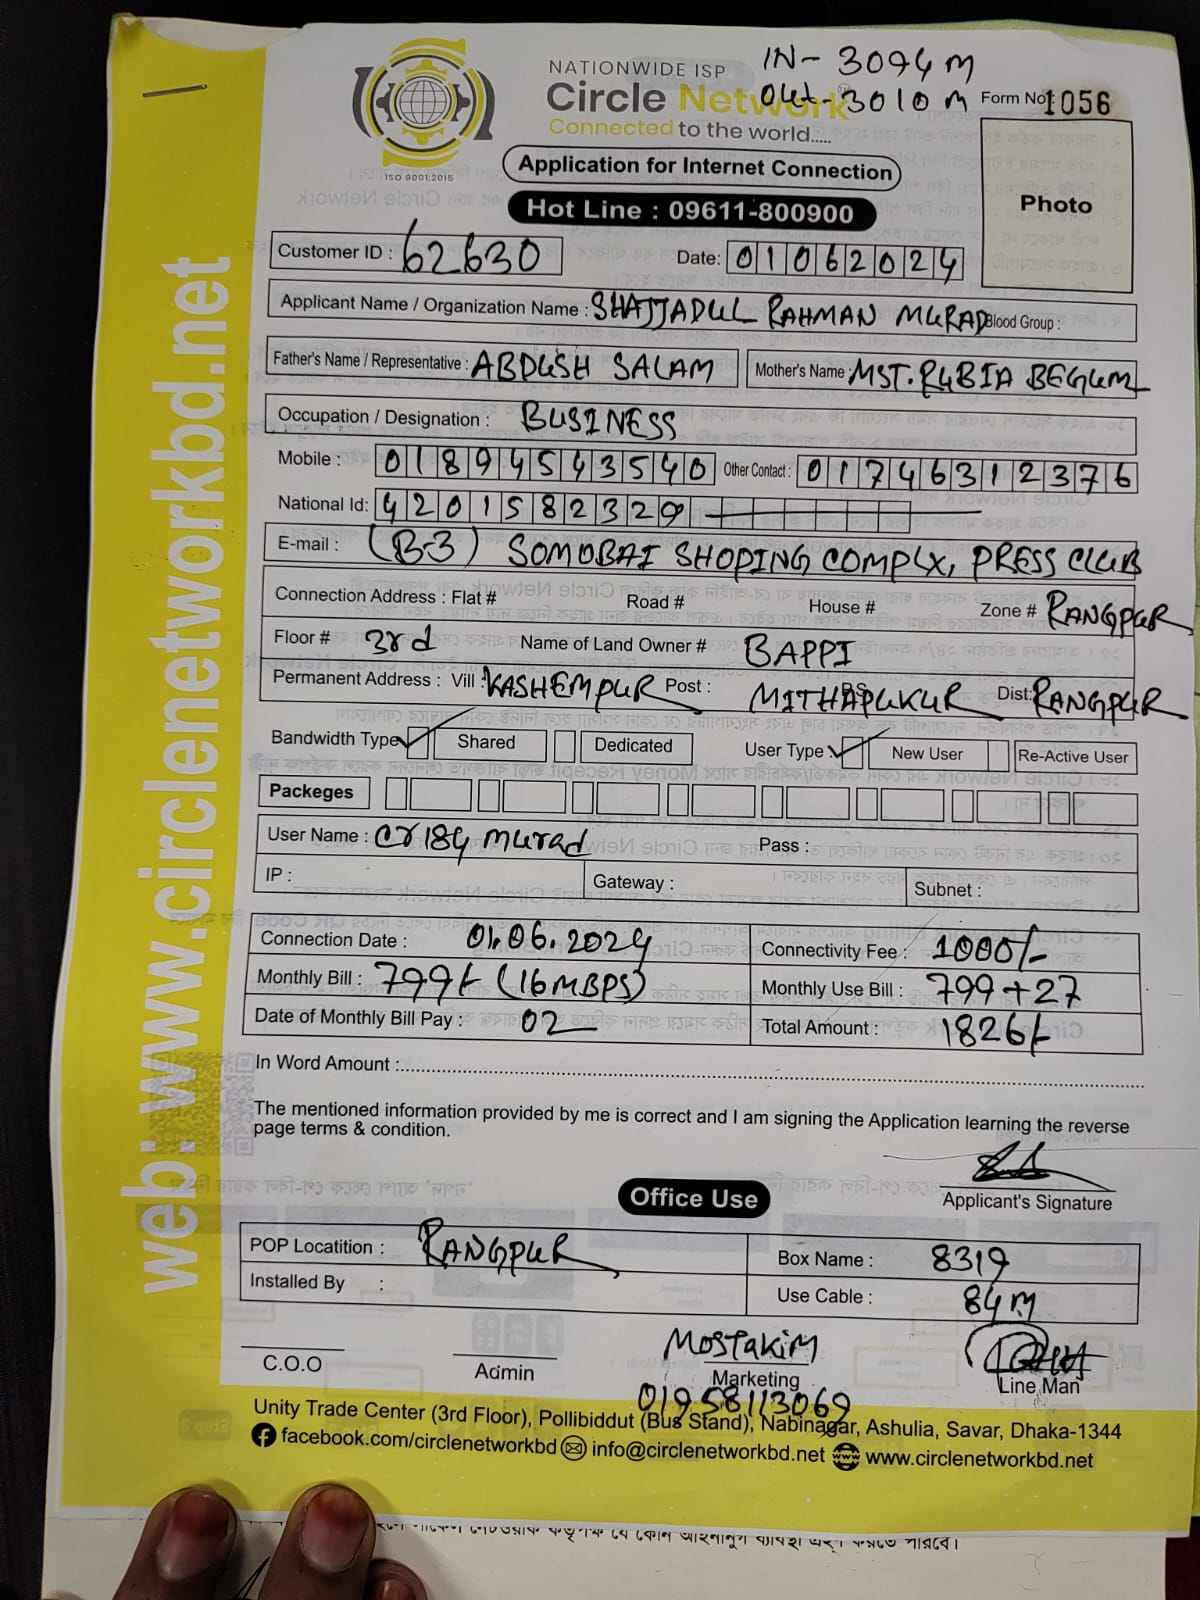 IN- 3094 M
NATIONWIDE ISP
Circle Network
Out- 3010 M
Form No: 1056
Connected to the world.....
ISO 9001:2015
Application for Internet Connection
Photo
Hot Line : 09611-800900
Customer ID : 62630
Date: 01062024
Applicant Name / Organization Name : SHAJJADUL RAHMAN MURAD Blood Group :
Father's Name / Representative : ABDUSH SALAM Mother's Name : MST. RUBIA BEGUM
Occupation / Designation : BUSINESS
Mobile : 01894543540 Other Contact : 01746312376
National Id: 4201582329
E-mail : (B-3) SOMOBAI SHOPING COMPLX, PRESS CLUB
Connection Address : Flat # Road # House # Zone # RANGPUR
Floor # 3rd Name of Land Owner # BAPPI
Permanent Address : Vill : KASHEMPUR Post : MITHAPUKUR P.S Dist: RANGPUR
Bandwidth Type Shared Dedicated User Type New User Re-Active User
Packeges
User Name : cr184murad Pass :
IP : Gateway : Subnet :
Connection Date : 01.06.2024 Connectivity Fee : 1000/-
Monthly Bill : 799/- (16MBPS) Monthly Use Bill : 799+27
Date of Monthly Bill Pay : 02 Total Amount : 1826/-
In Word Amount :
The mentioned information provided by me is correct and I am signing the Application learning the reverse
page terms & condition.
Applicant's Signature
Office Use
POP Locatition : RANGPUR Box Name : 8319
Installed By : Use Cable : 84M
MOSTAKIM
C.O.O Admin Marketing Line Man
01958113069
Unity Trade Center (3rd Floor), Pollibiddut (Bus Stand), Nabinagar, Ashulia, Savar, Dhaka-1344
facebook.com/circlenetworkbd info@circlenetworkbd.net www.circlenetworkbd.net
web: www.circlenetworkbd.net